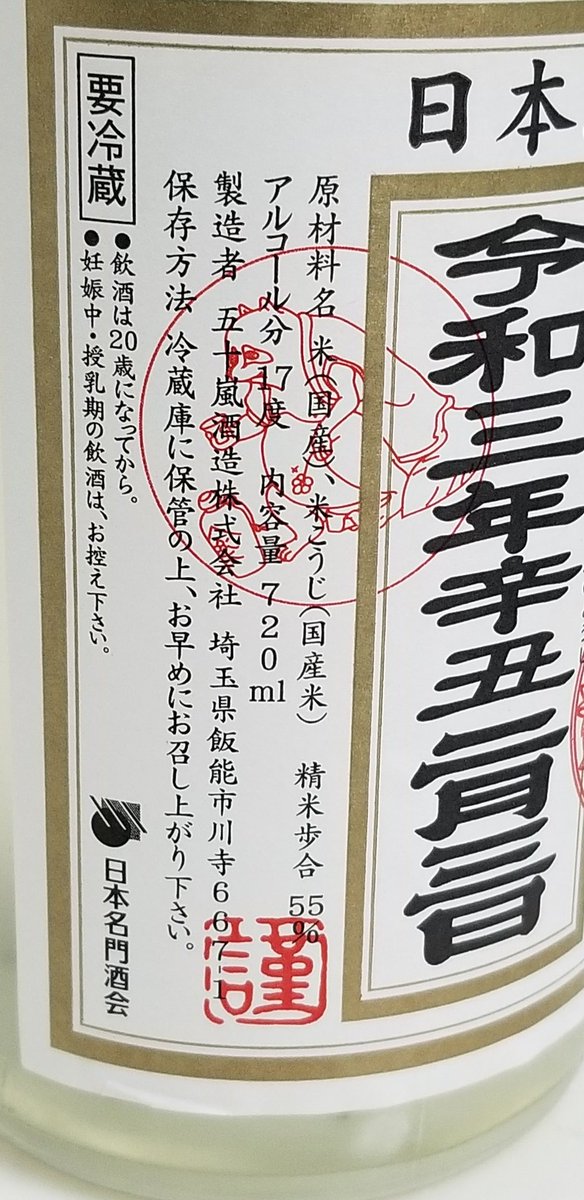 日本
令和三年辛丑二月三日
原材料名 米(国産)、米こうじ(国産米) 精米歩合 55%
アルコール分 17度 内容量 720ml
製造者 五十嵐酒造株式会社 埼玉県飯能市川寺667-1
保存方法 冷蔵庫に保管の上、お早めにお召し上がり下さい。
要冷蔵
●飲酒は20歳になってから。
●妊娠中・授乳期の飲酒は、お控え下さい。
日本名門酒会
謹